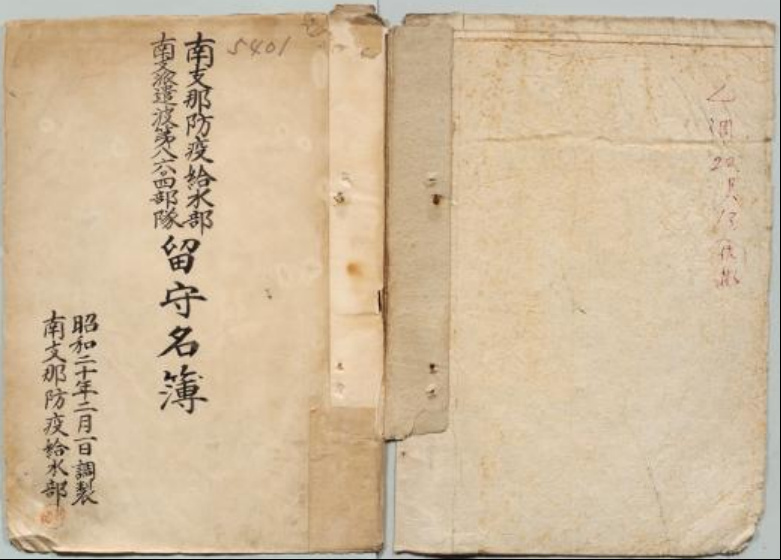 5401
南支那防疫給水部
南支派遣波第八六〇四部隊
留守名簿
昭和二十年二月一日調製
南支那防疫給水部